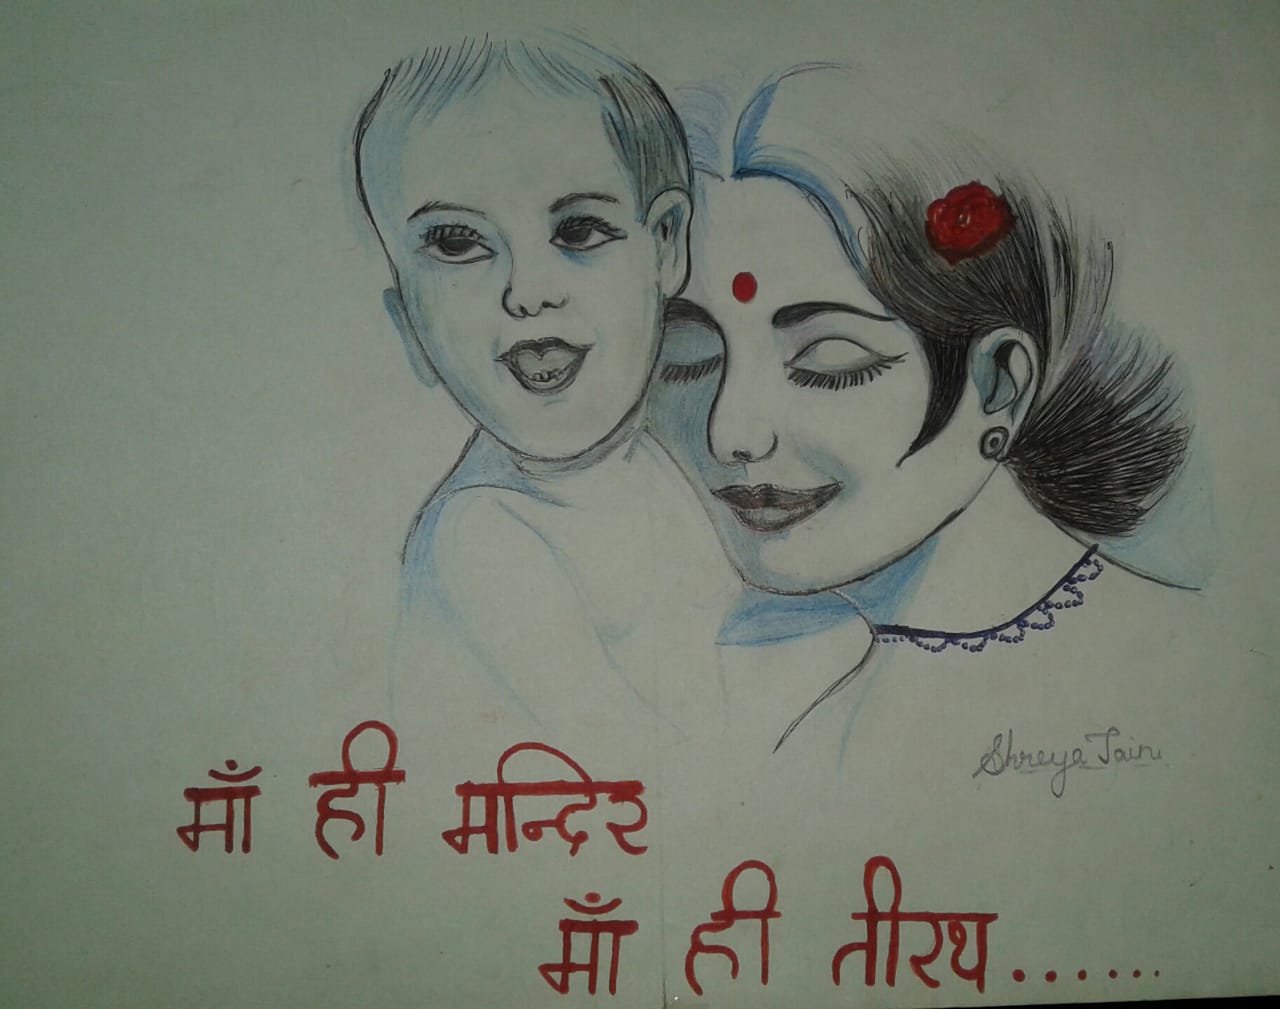 Shreya Jain
माँ ही मन्दिर
माँ ही तीरथ......